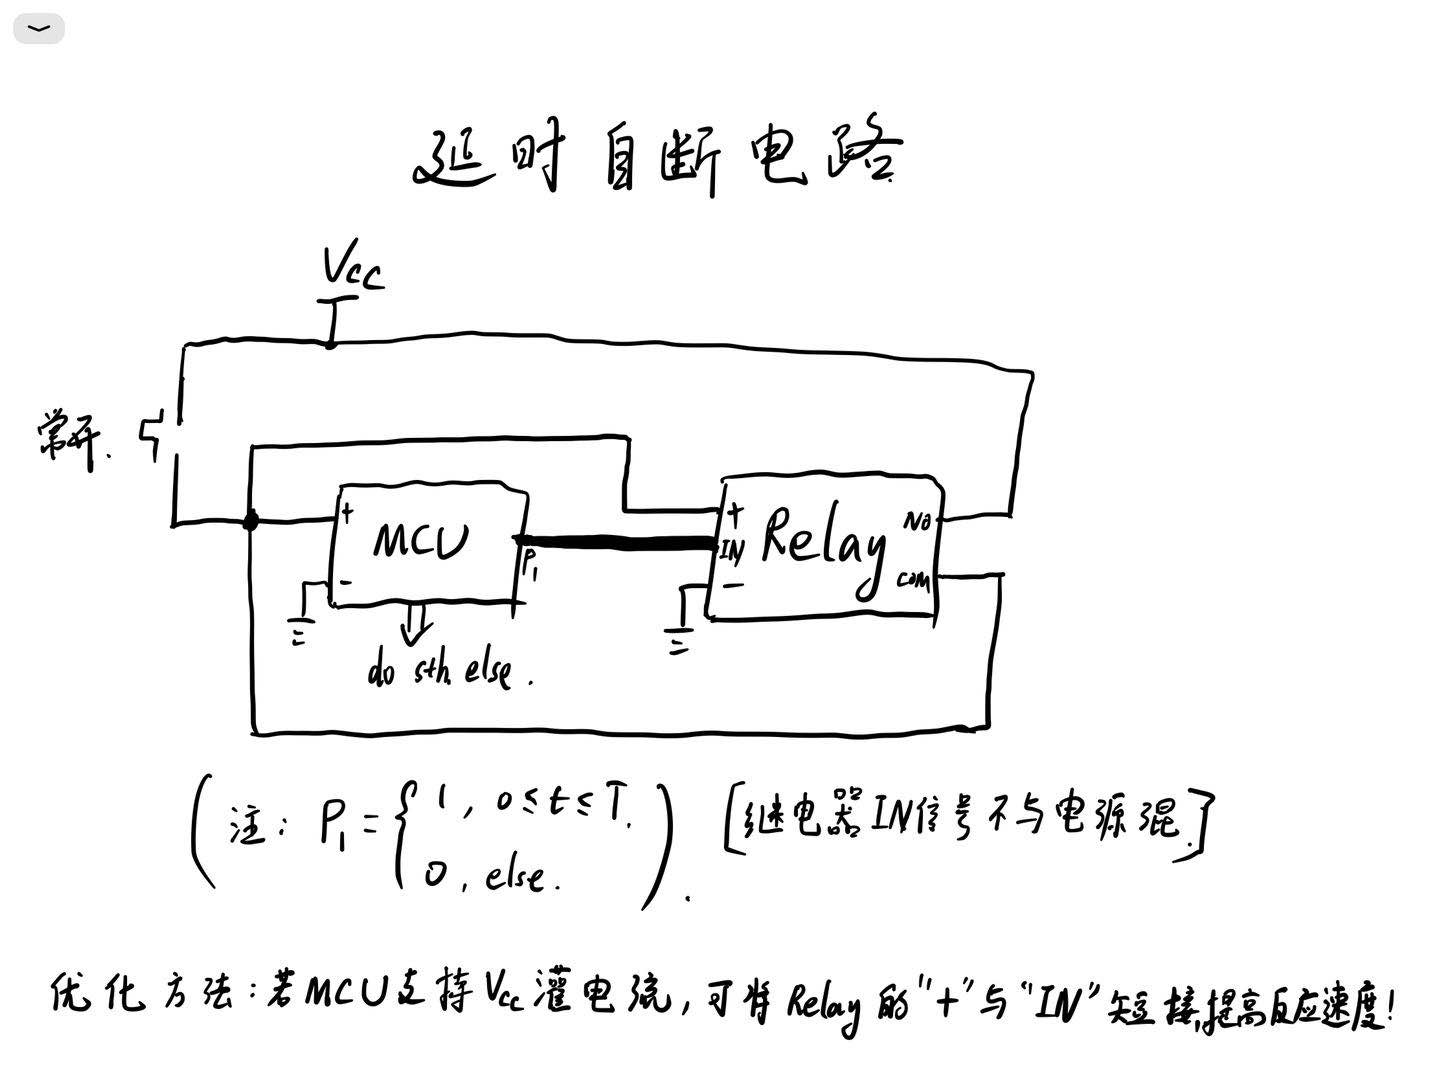 延时自断电路
Vcc
常开.
+ MCU P1
-
do sth. else.
+ Relay NO
IN
- COM
(注: P1 = { 1, 0≤t≤T. 0, else. ). [继电器IN信号不与电源混.]
优化方法:若MCU支持Vcc灌电流,可将Relay的"+"与"IN"短接,提高反应速度!